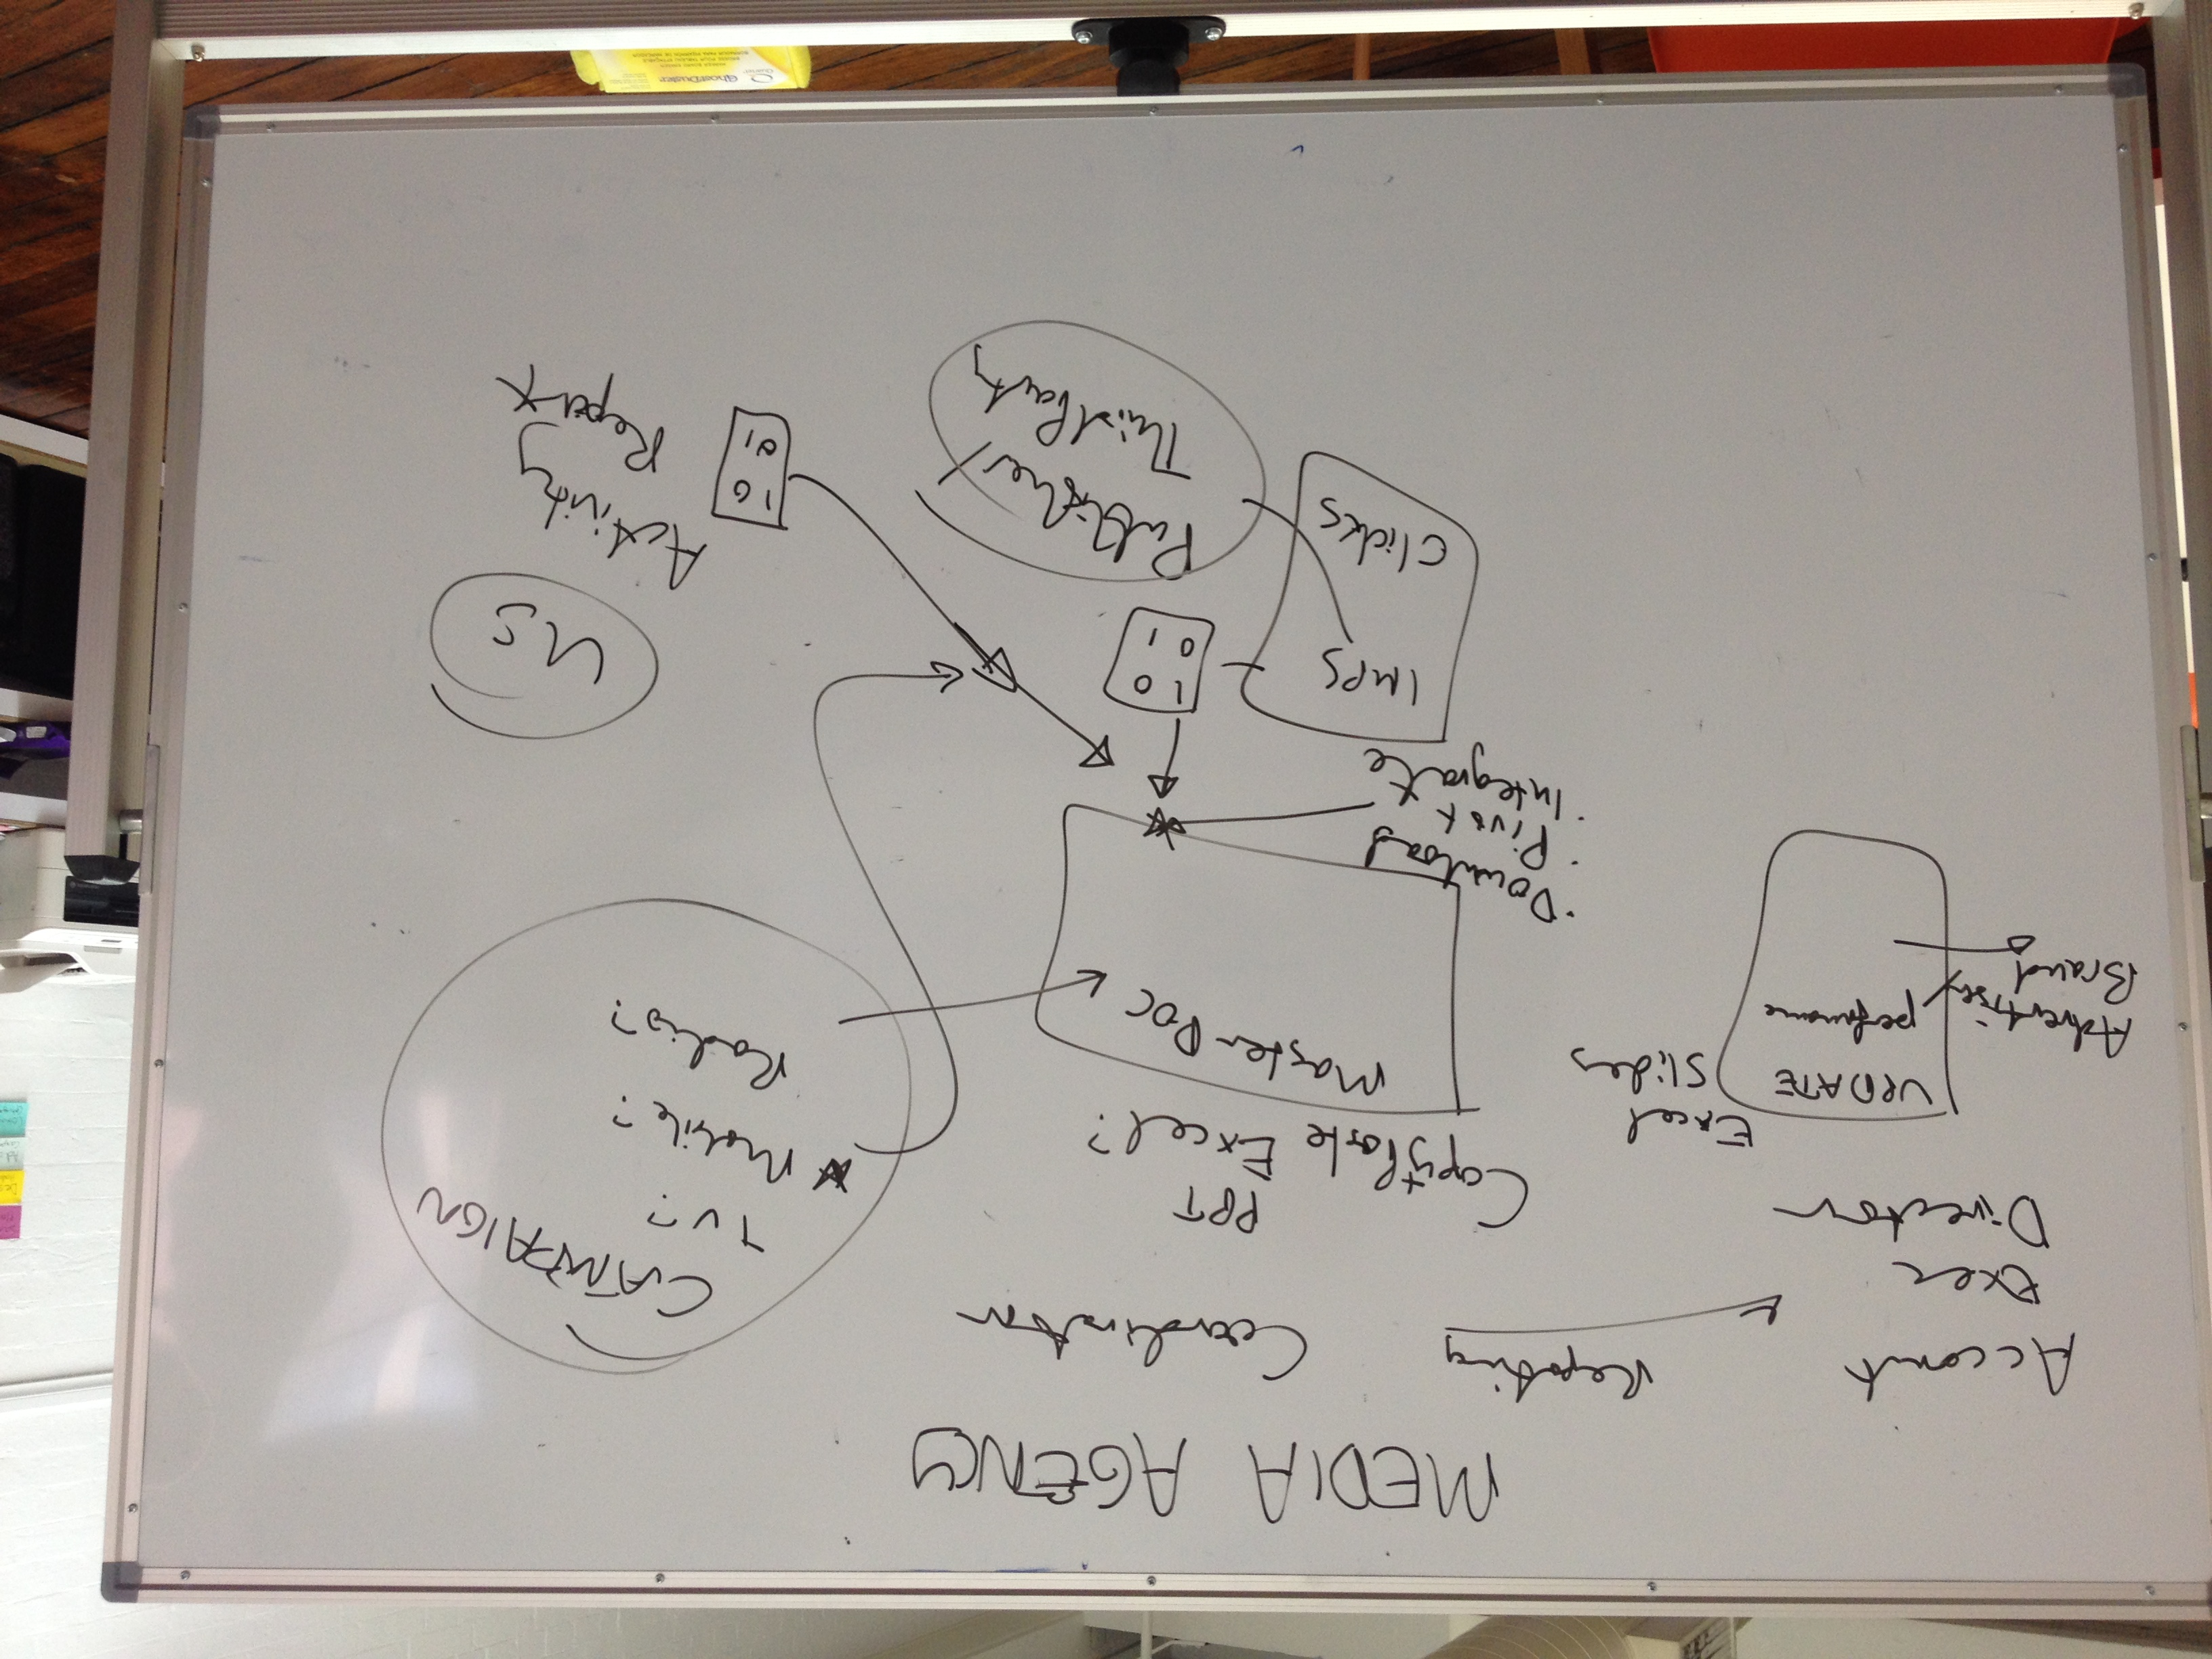 MEDIA AGENCY
Account
Exec
Director
Reporting
Coordinator
CAMPAIGN
TV?
Mobile?
Radio?
PPT
Copy + Paste Excel?
Master Doc
Excel
Slides
UPDATE
performance
Advertiser/
Brand
· Download
· Pivot
· Integrate
IMPS
Clicks
1 0
0 1
Publisher/
Third Party
US
Activity
Report
1 0
0 1
GhostDuster